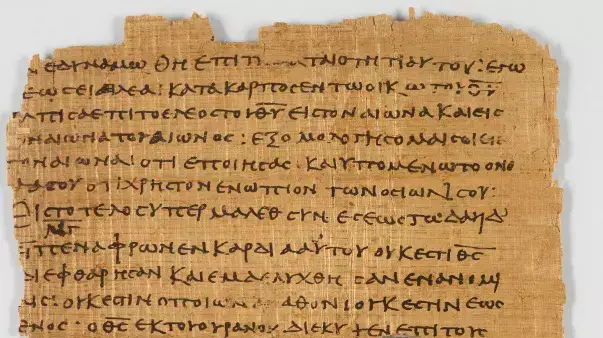 ΝΕΔΥΝΑΜΩΘΗ ΕΠΙ ΤΑΙΟΤΗΤΙ ΑΥΤΟΥ : ΕΓΩ
ΕΩϹΕΙ ΕΛΕΑ : ΚΑΤΑΚΑΡΠΟϹ ΕΝ ΤΩ ΟΙΚΩ ΤΟΥ Θ̅Υ̅
ΛΠΙϹΑ ΕΠΙ ΤΟ ΕΛΕΟϹ ΤΟΥ Θ̅Υ̅ ΕΙϹ ΤΟΝ ΑΙΩΝΑ ΚΑΙ ΕΙϹ
ΟΝ ΑΙΩΝΑ ΤΟΥ ΑΙΩΝΟϹ : ΕΞΟΜΟΛΟΓΗϹΟΜΑΙ ϹΟΙ ΕΙϹ
ΟΝ ΑΙΩΝΑ ΟΤΙ ΕΠΟΙΗϹΑϹ : ΚΑΙ ΥΠΟΜΕΝΩ ΤΟ ΟΝΟ
ΜΑ ϹΟΥ ΟΤΙ ΧΡΗϹΤΟΝ ΕΝΩΠΙΟΝ ΤΩΝ ΟϹΙΩΝ ϹΟΥ :
ΕΙϹ ΤΟ ΤΕΛΟϹ ΥΠΕΡ ΜΑΛΕΘ ϹΥΝΕϹΕΩϹ ΤΩ ΔΑΥΙΔ
ΝΓ
ΕΙΠΕΝ ΑΦΡΩΝ ΕΝ ΚΑΡΔΙΑ ΑΥΤΟΥ ΟΥΚ ΕϹΤΙ Θ̅Ϲ̅
ΔΙΕΦΘΑΡΗϹΑΝ ΚΑΙ ΕΒΔΕΛΥΧΘΗϹΑΝ ΕΝ ΑΝΟΜΙ
ΑΙϹ : ΟΥΚ ΕϹΤΙΝ Ο ΠΟΙΩΝ ΑΓΑΘΟΝ ΟΥΚ ΕϹΤΙΝ ΕΩϹ
ΕΝΟϹ : Ο Θ̅Ϲ̅ ΕΚ ΤΟΥ ΟΥΡΑΝΟΥ ΔΙΕΚΥΨΕΝ ΕΠΙ ΤΟΥϹ